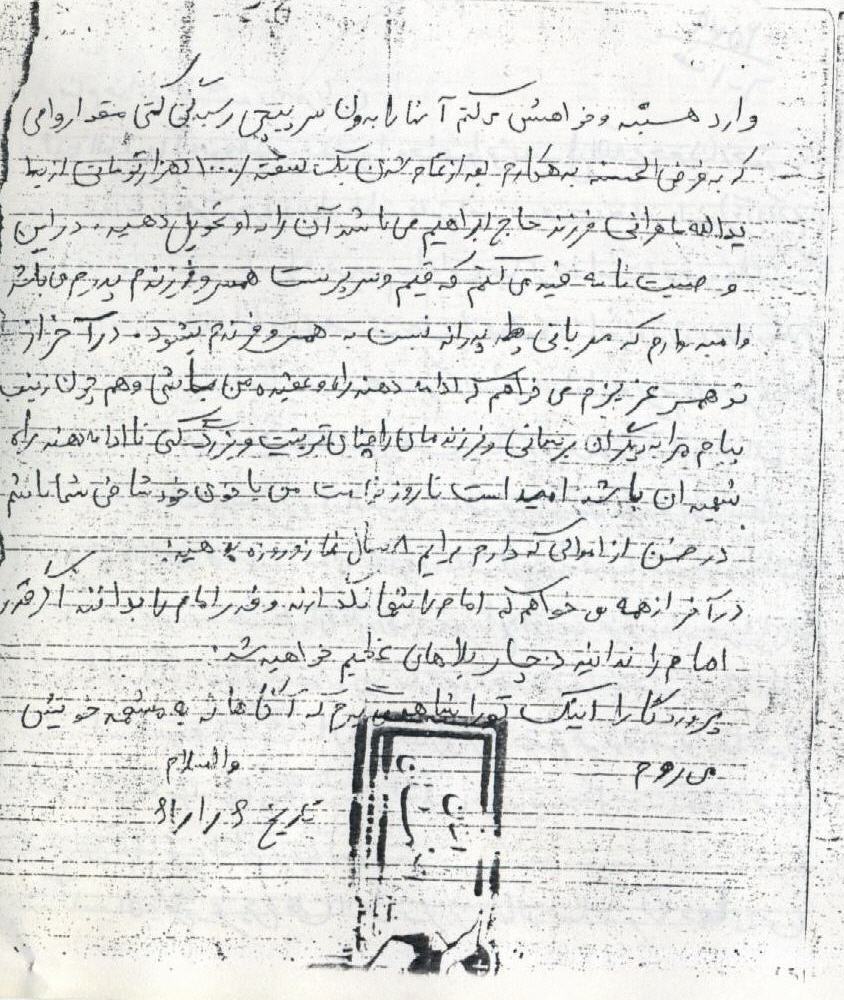 وارد هستید و خواهش می‌کنم آنها را بدون سرپیچی رسیدگی کنی مقدار وامی
که به قرض الحسنه بدهکارم بعد از تمام شدن یک سفته ۱۰۰۰۰ هزار تومانی از
یدالله فرزند حاج ابراهیم می باشد آن را به او تحویل دهید. در این
وصیت نامه قید می کنم که قیم و سرپرست همسر و فرزندم پدرم می باشد
و امیدوارم که مهربانی پدرانه نسبت به همسر و فرزندم بشود. در آخر از
تو همسر عزیزم می خواهم که ادامه دهنده راه و عقیده من باشی و هم چون زینب
پیام مرا به دیگران برسانی و فرزندمان را چنان تربیت و بزرگ کنی تا ادامه دهنده راه
شهیدان باشد امید است تا روز قیامت من با خوی خود شافی شما باشم
در ضمن از اموالی که دارم برایم ۸ سال نماز و روزه بدهید:
در آخر از همه می خواهم که امام را تنها نگذارند و قدر امام را بدانند اگر قدر
امام را ندانید دچار بلاهای عظیم خواهید شد.
پروردگارا اینک تو را که آگاهانه به مشهد خویش
می روم
والسلام
تاریخ